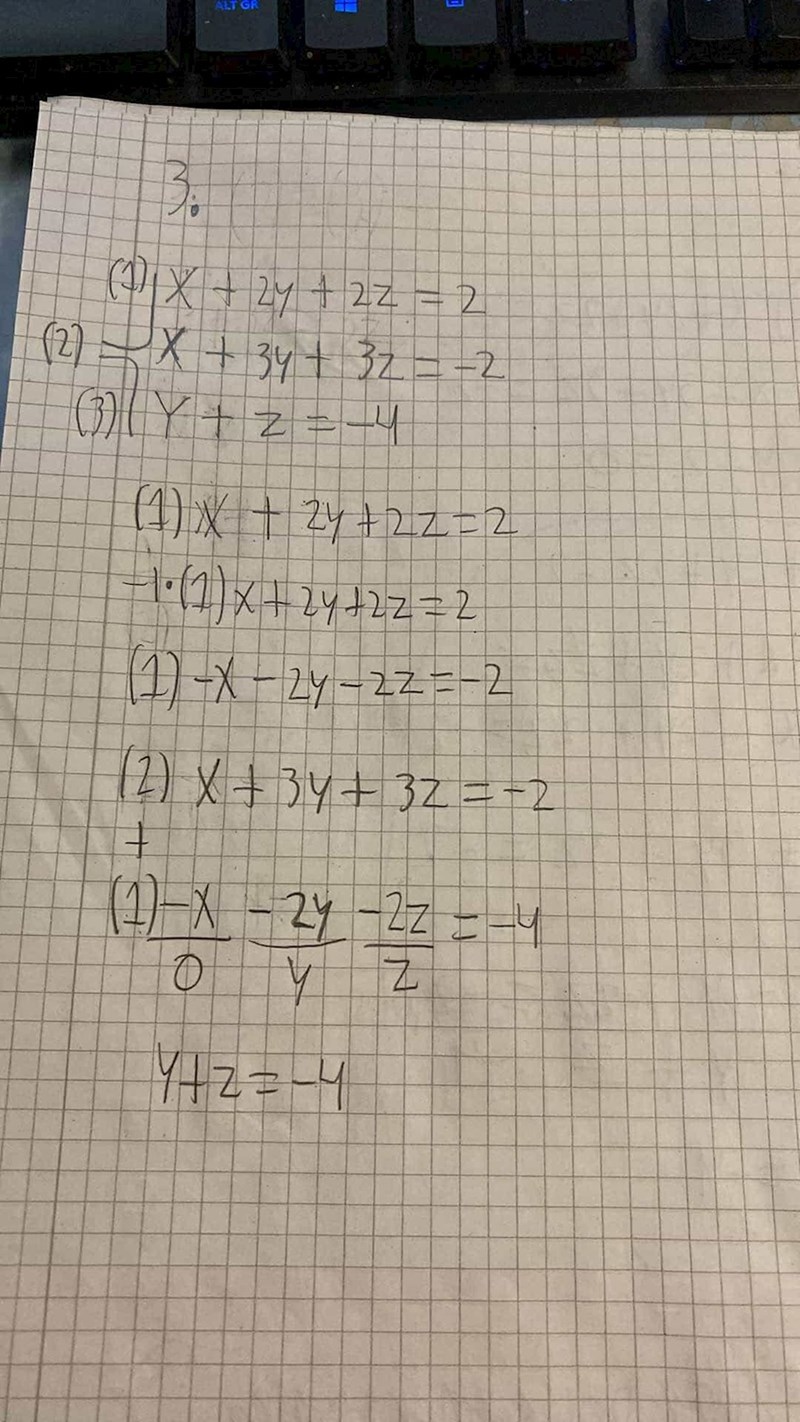 ALT GR
3.
(1) X + 2y + 2z = 2
(2) X + 3y + 3z = -2
(3) Y + z = -4
(1) X + 2y + 2z = 2
-1·(1) X + 2y + 2z = 2
(1) -X - 2y - 2z = -2
(2) X + 3y + 3z = -2
+
(1) -X - 2y - 2z = -4
0 y z
y + z = -4